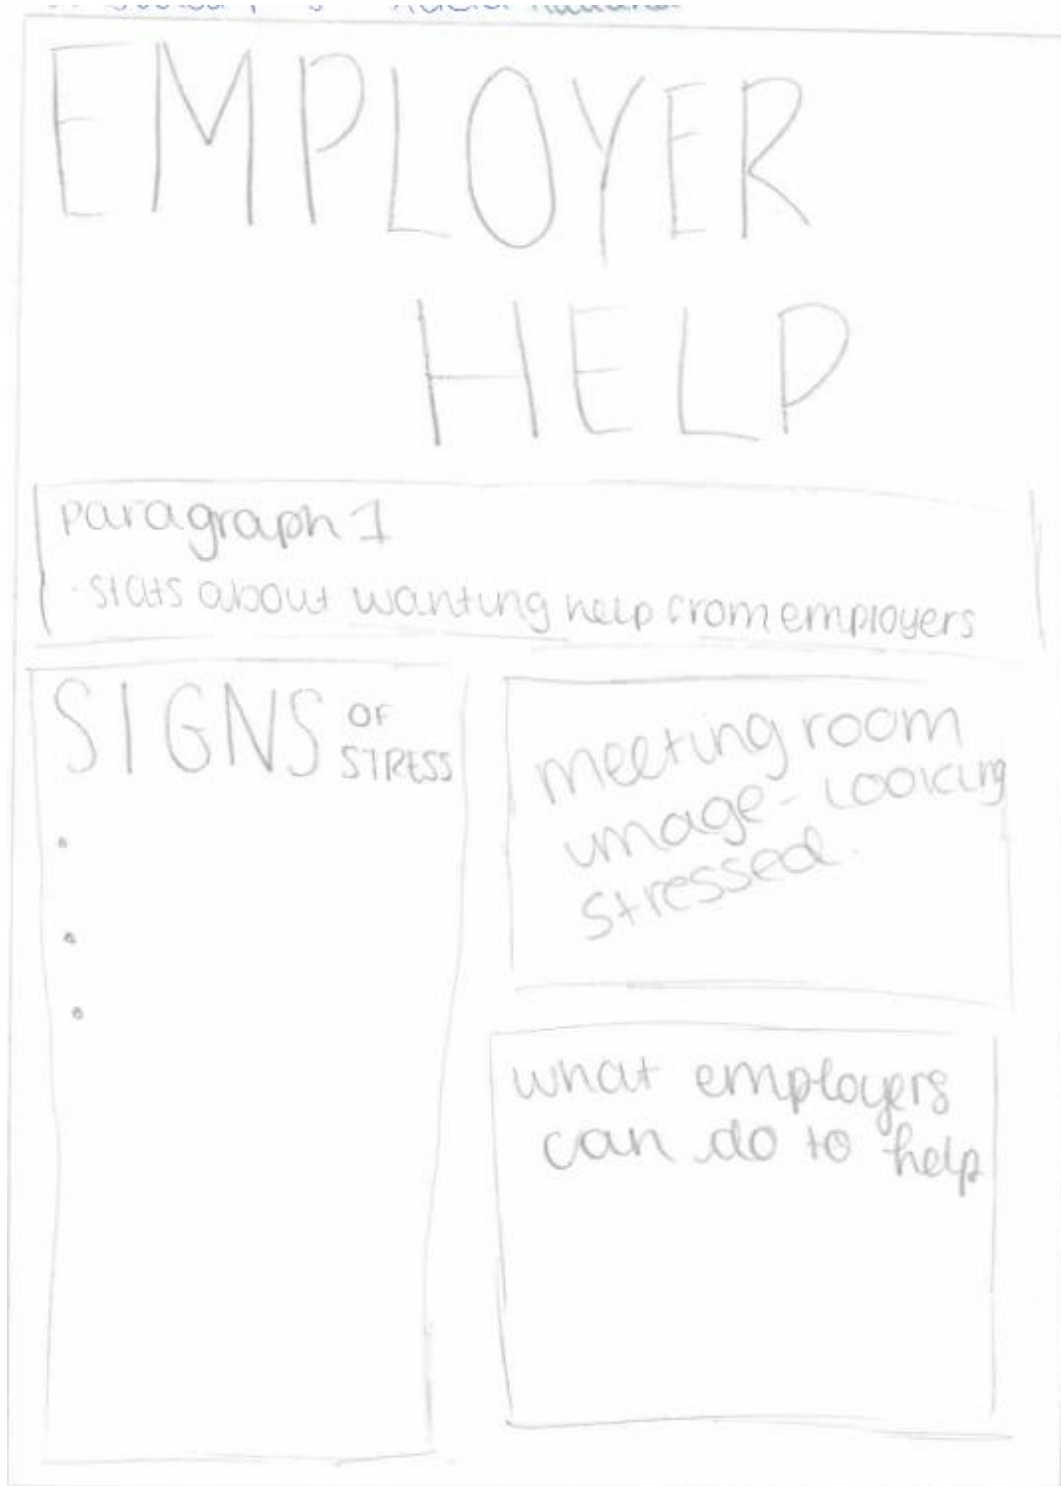 EMPLOYER
HELP
paragraph 1
· stats about wanting help from employers
SIGNS OF
STRESS
meeting room
image - looking
stressed.
what employers
can do to help